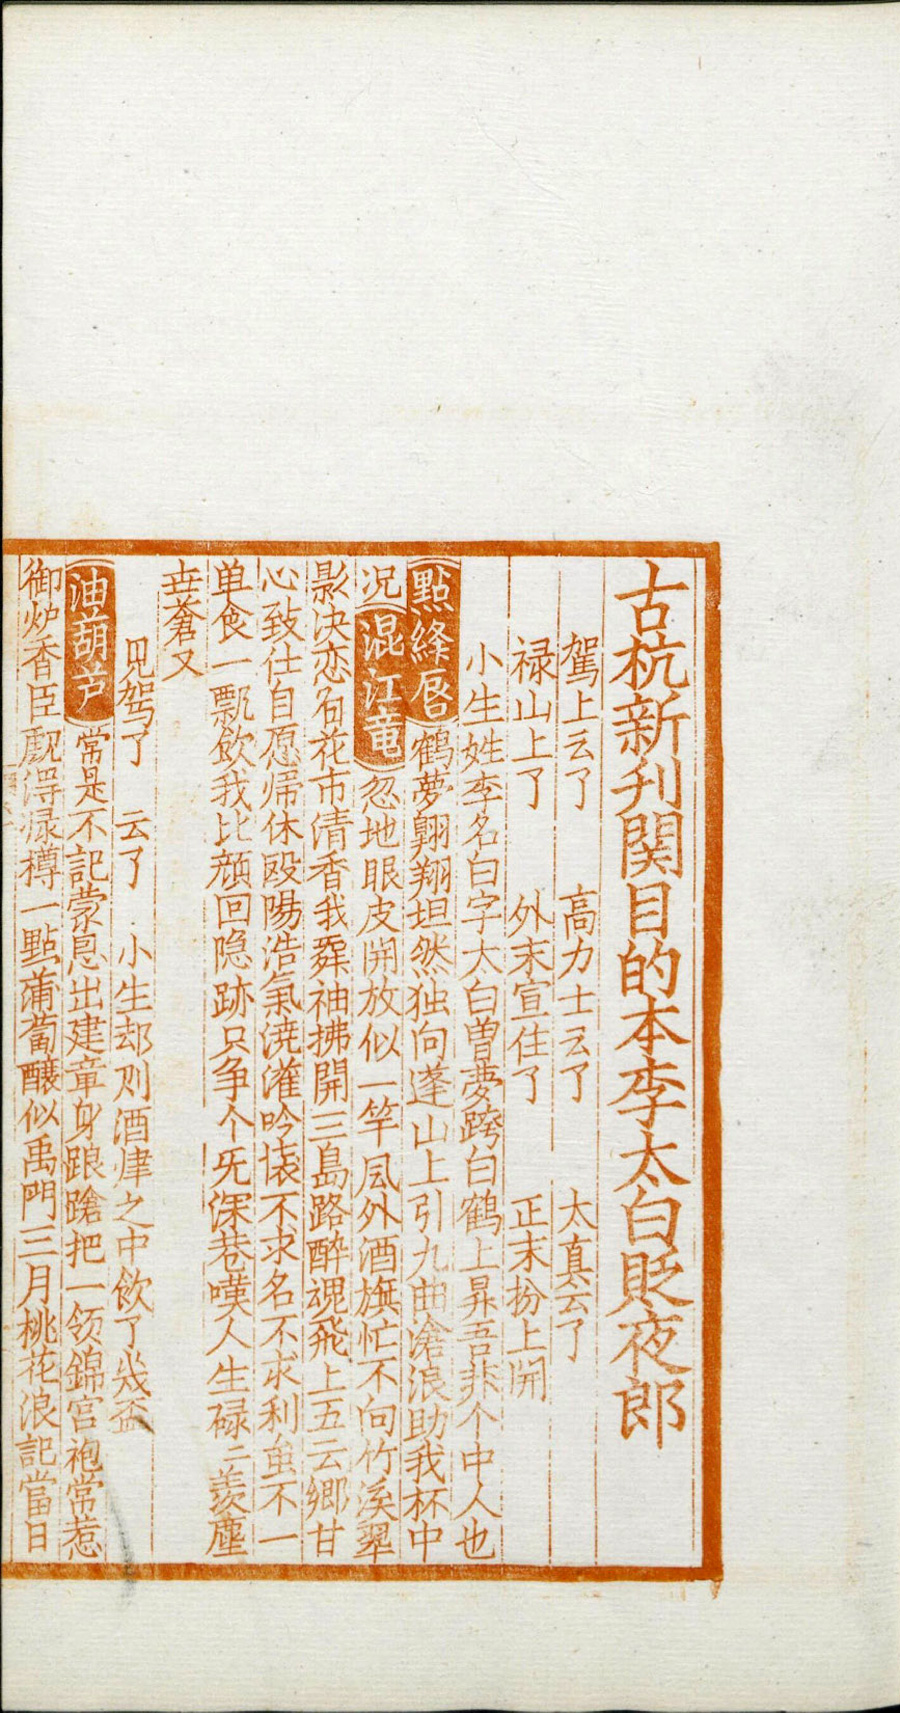 古杭新刋関目的本李太白貶夜郎
駕上云了　高力士云了　太真云了
禄山上了　外末宣住了　正末扮上開
小生姓李名白字太白曽夢跨白鶴上昇吾非个中人也
點絳唇 鶴夢翱翔坦然独向蓬山上引九曲滄浪助我杯中
况 混江竜 忽地眼皮開放似一竿風外酒旗忙不向竹溪翠
影决恋名花市清香我舞袖拂開三島路醉魂飛上五云鄉甘
心致仕自愿帰休殴陽浩氣澆灌吟懐不求名不求利虽不一
单食一瓢飲我比顔回隐跡只争个无深巷嘆人生禄二羡塵
世蒼又
見驾了　云了　小生却則酒肆之中飲了幾盃
油葫芦 常是不記蒙恩出建章身踉蹌把一领錦宫袍常惹
御炉香臣覷淂渌樽一點蒲萄釀似禹門三月桃花浪記當日